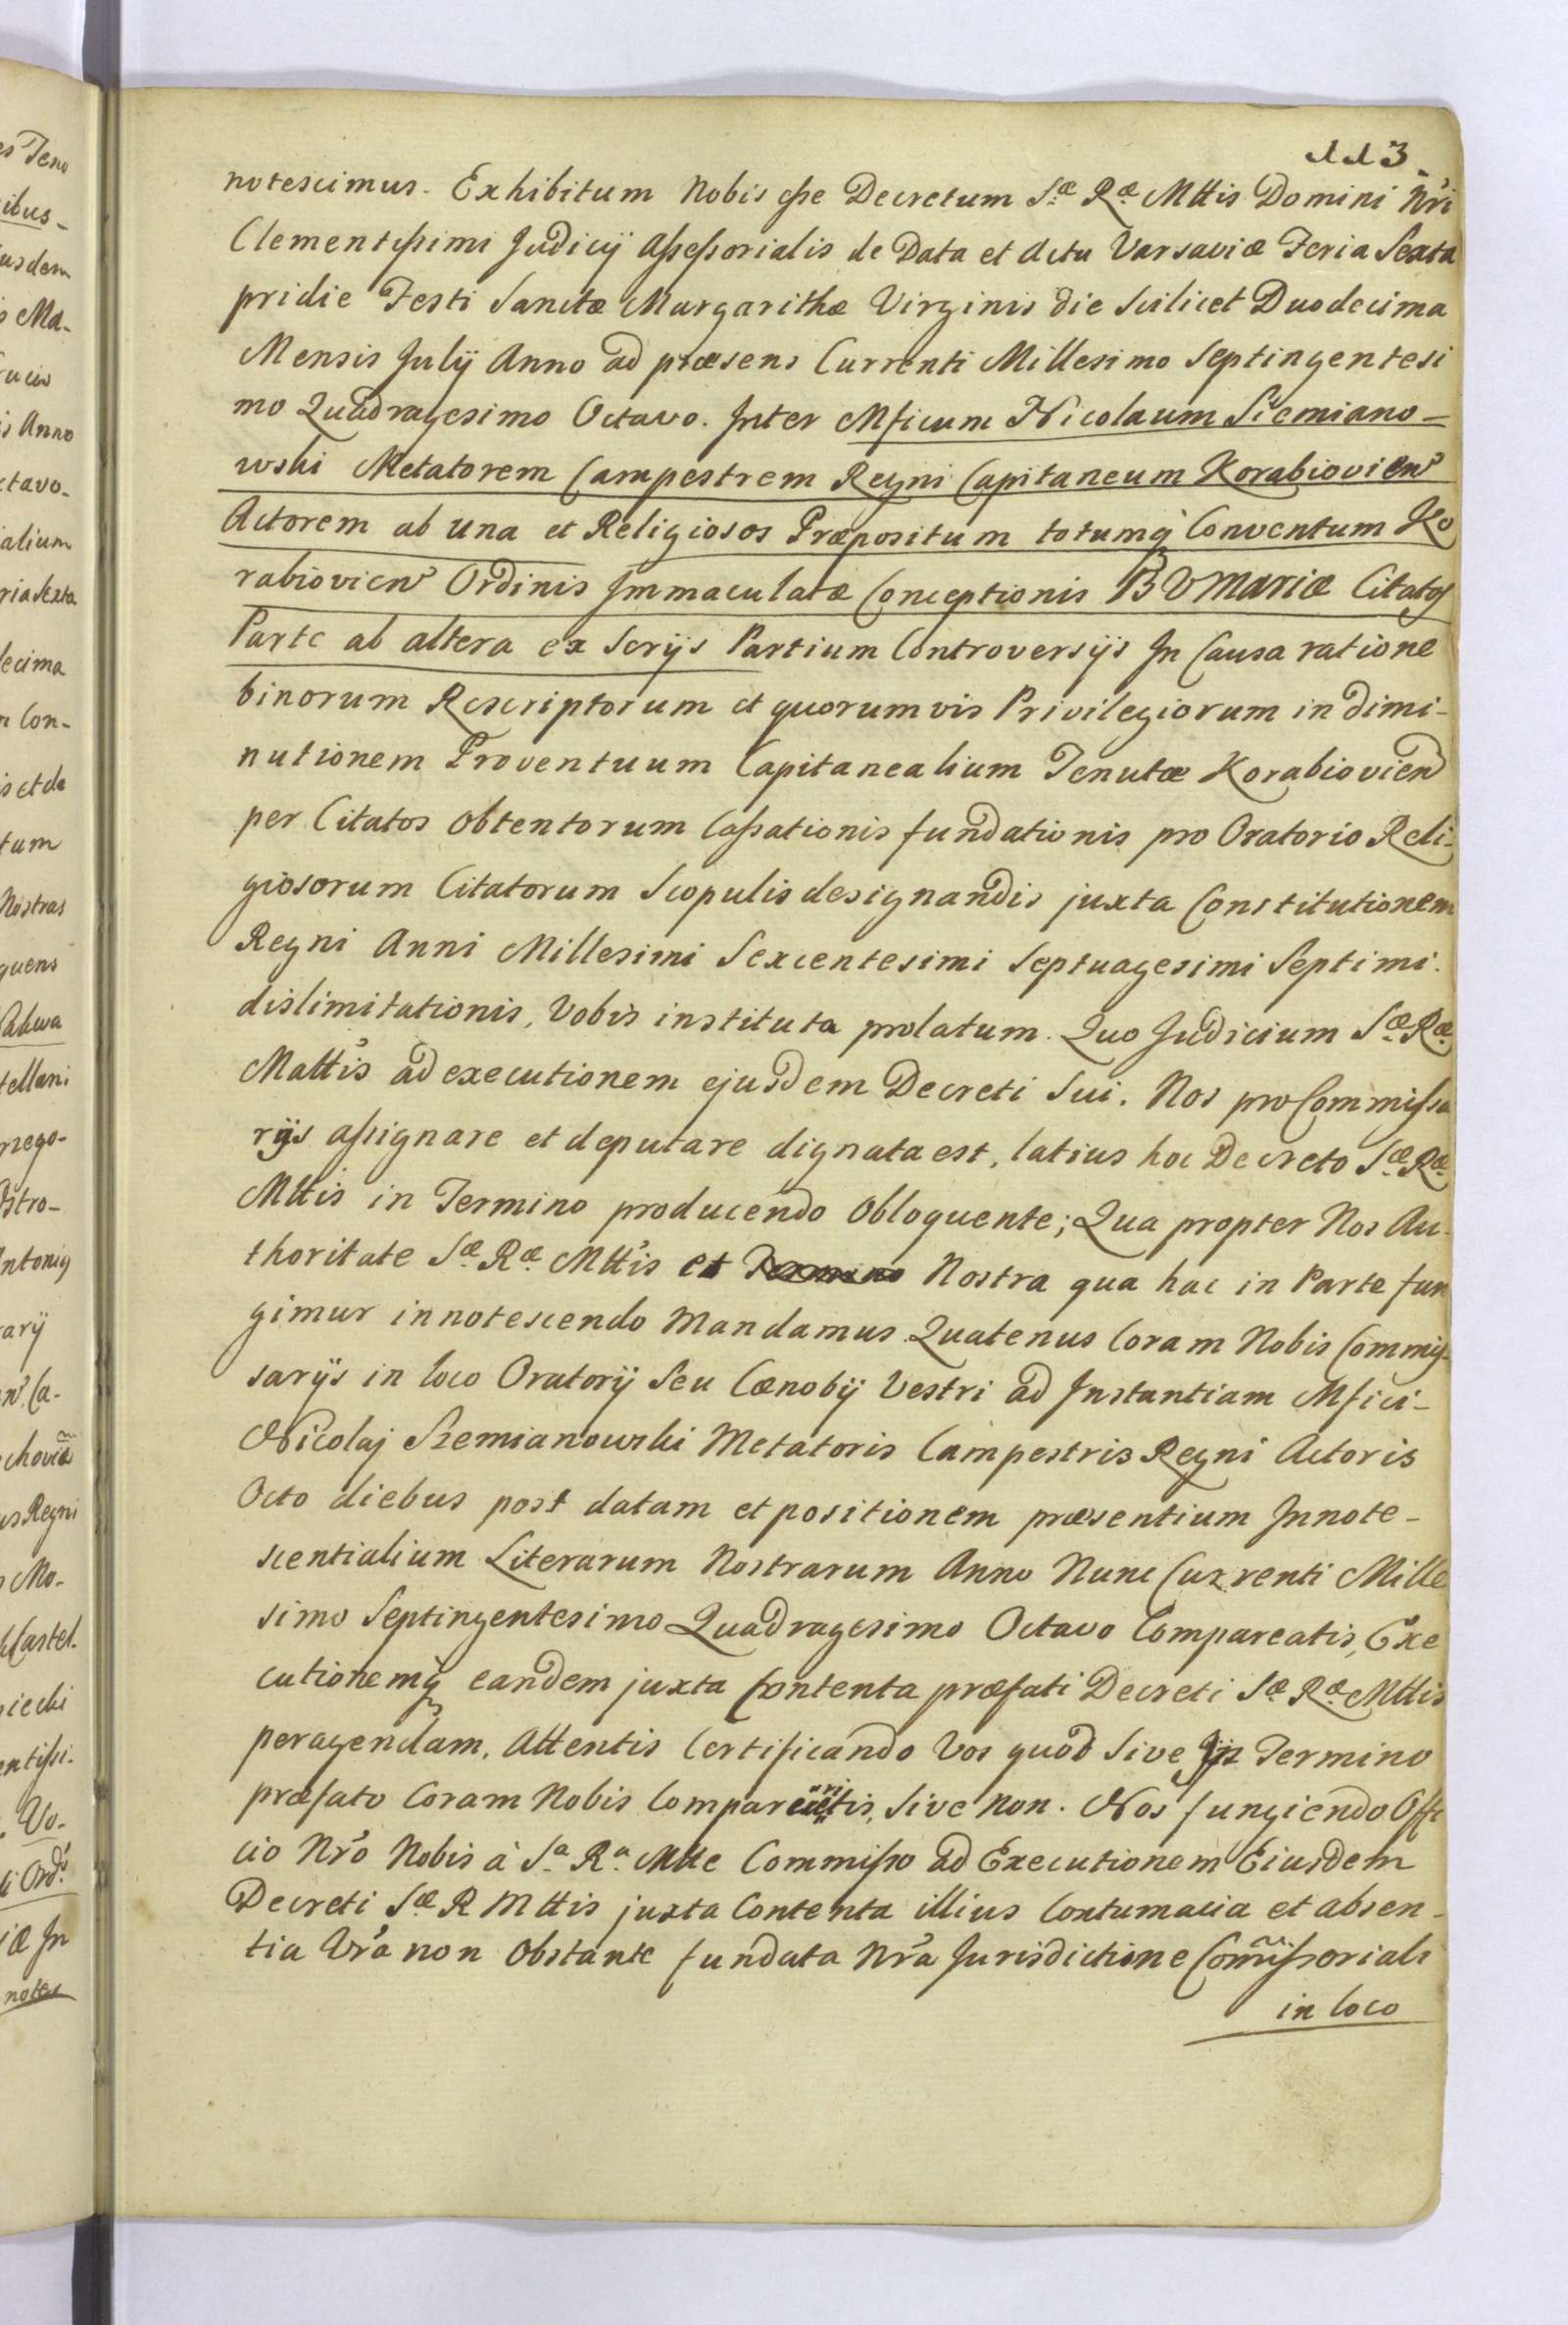 113.
notescimus. Exhibitum Nobis esse Decretum S.æ R.æ Mttis Domini Nri
Clementissimi Judicij Assessorialis de Data et Actu Varsaviæ Feria Sexta
pridie Festi Sanctæ Margarithæ Virginis die Scilicet Duodecima
Mensis Julij Anno ad præsens Currenti Millesimo Septingentesi
mo Quadragesimo Octavo. Inter Mficum Nicolaum Siemiano=
wski Metatorem Campestrem Regni Capitaneum Korabiovien
Actorem ab una et Religiosos Præpositum totumq Conventum Ko
rabiovien Ordinis Immaculatæ Conceptionis B V Mariæ Citatos
Parte ab altera ex Serijs Partium Controversijs In Causa ratione
binorum Rescriptorum et quorumvis Privilegiorum in dimi-
nutionem Proventuum Capitanealium Tenutæ Korabiovien
per Citatos obtentorum Cassationis fundationis pro Oratorio Reli-
giosorum Citatorum Scopulis designandis juxta Constitutionem
Regni Anni Millesimi Sexcentesimi Septuagesimi Septimi.
dislimitationis, Vobis instituta prolatum. Quo Judicium S.æ R.æ
Mattis ad executionem ejusdem Decreti Sui. Nos pro Commissa
rijs assignare et deputare dignata est, latius hoc Decreto S.æ R.æ
Mttis in Termino producendo Obloquente; Qua propter Nos Au-
thoritate S.æ R.æ Mttis et Nostra qua hac in Parte fun
gimur innotescendo Mandamus Quatenus Coram Nobis Commis-
sarijs in loco Oratorij Seu Cœnobij Vestri ad Instantiam Mfici-
Nicolaj Szemianowski Metatoris Campestris Regni Actoris
Octo diebus post datam et positionem præsentium Innote-
scentialium Literarum Nostrarum Anno Nunc Currenti Mille
simo Septingentesimo Quadragesimo Octavo Compareatis, Exe
cutionemq eandem juxta Contenta præfati Decreti S.æ R.æ Mttis
peragendam, Attentis Certificando Vos quod Sive In Termino
præfato Coram Nobis Compartis, Sive non. Nos fungiendo Offi
cio Nro Nobis à S.a R.a Mtte Commisso ad Executionem Eiusdem
Decreti S.æ R Mttis juxta Contenta illius Contumacia et absen-
tia Vra non Obstante fundata Nra Jurisdictione Comissoriali
in loco